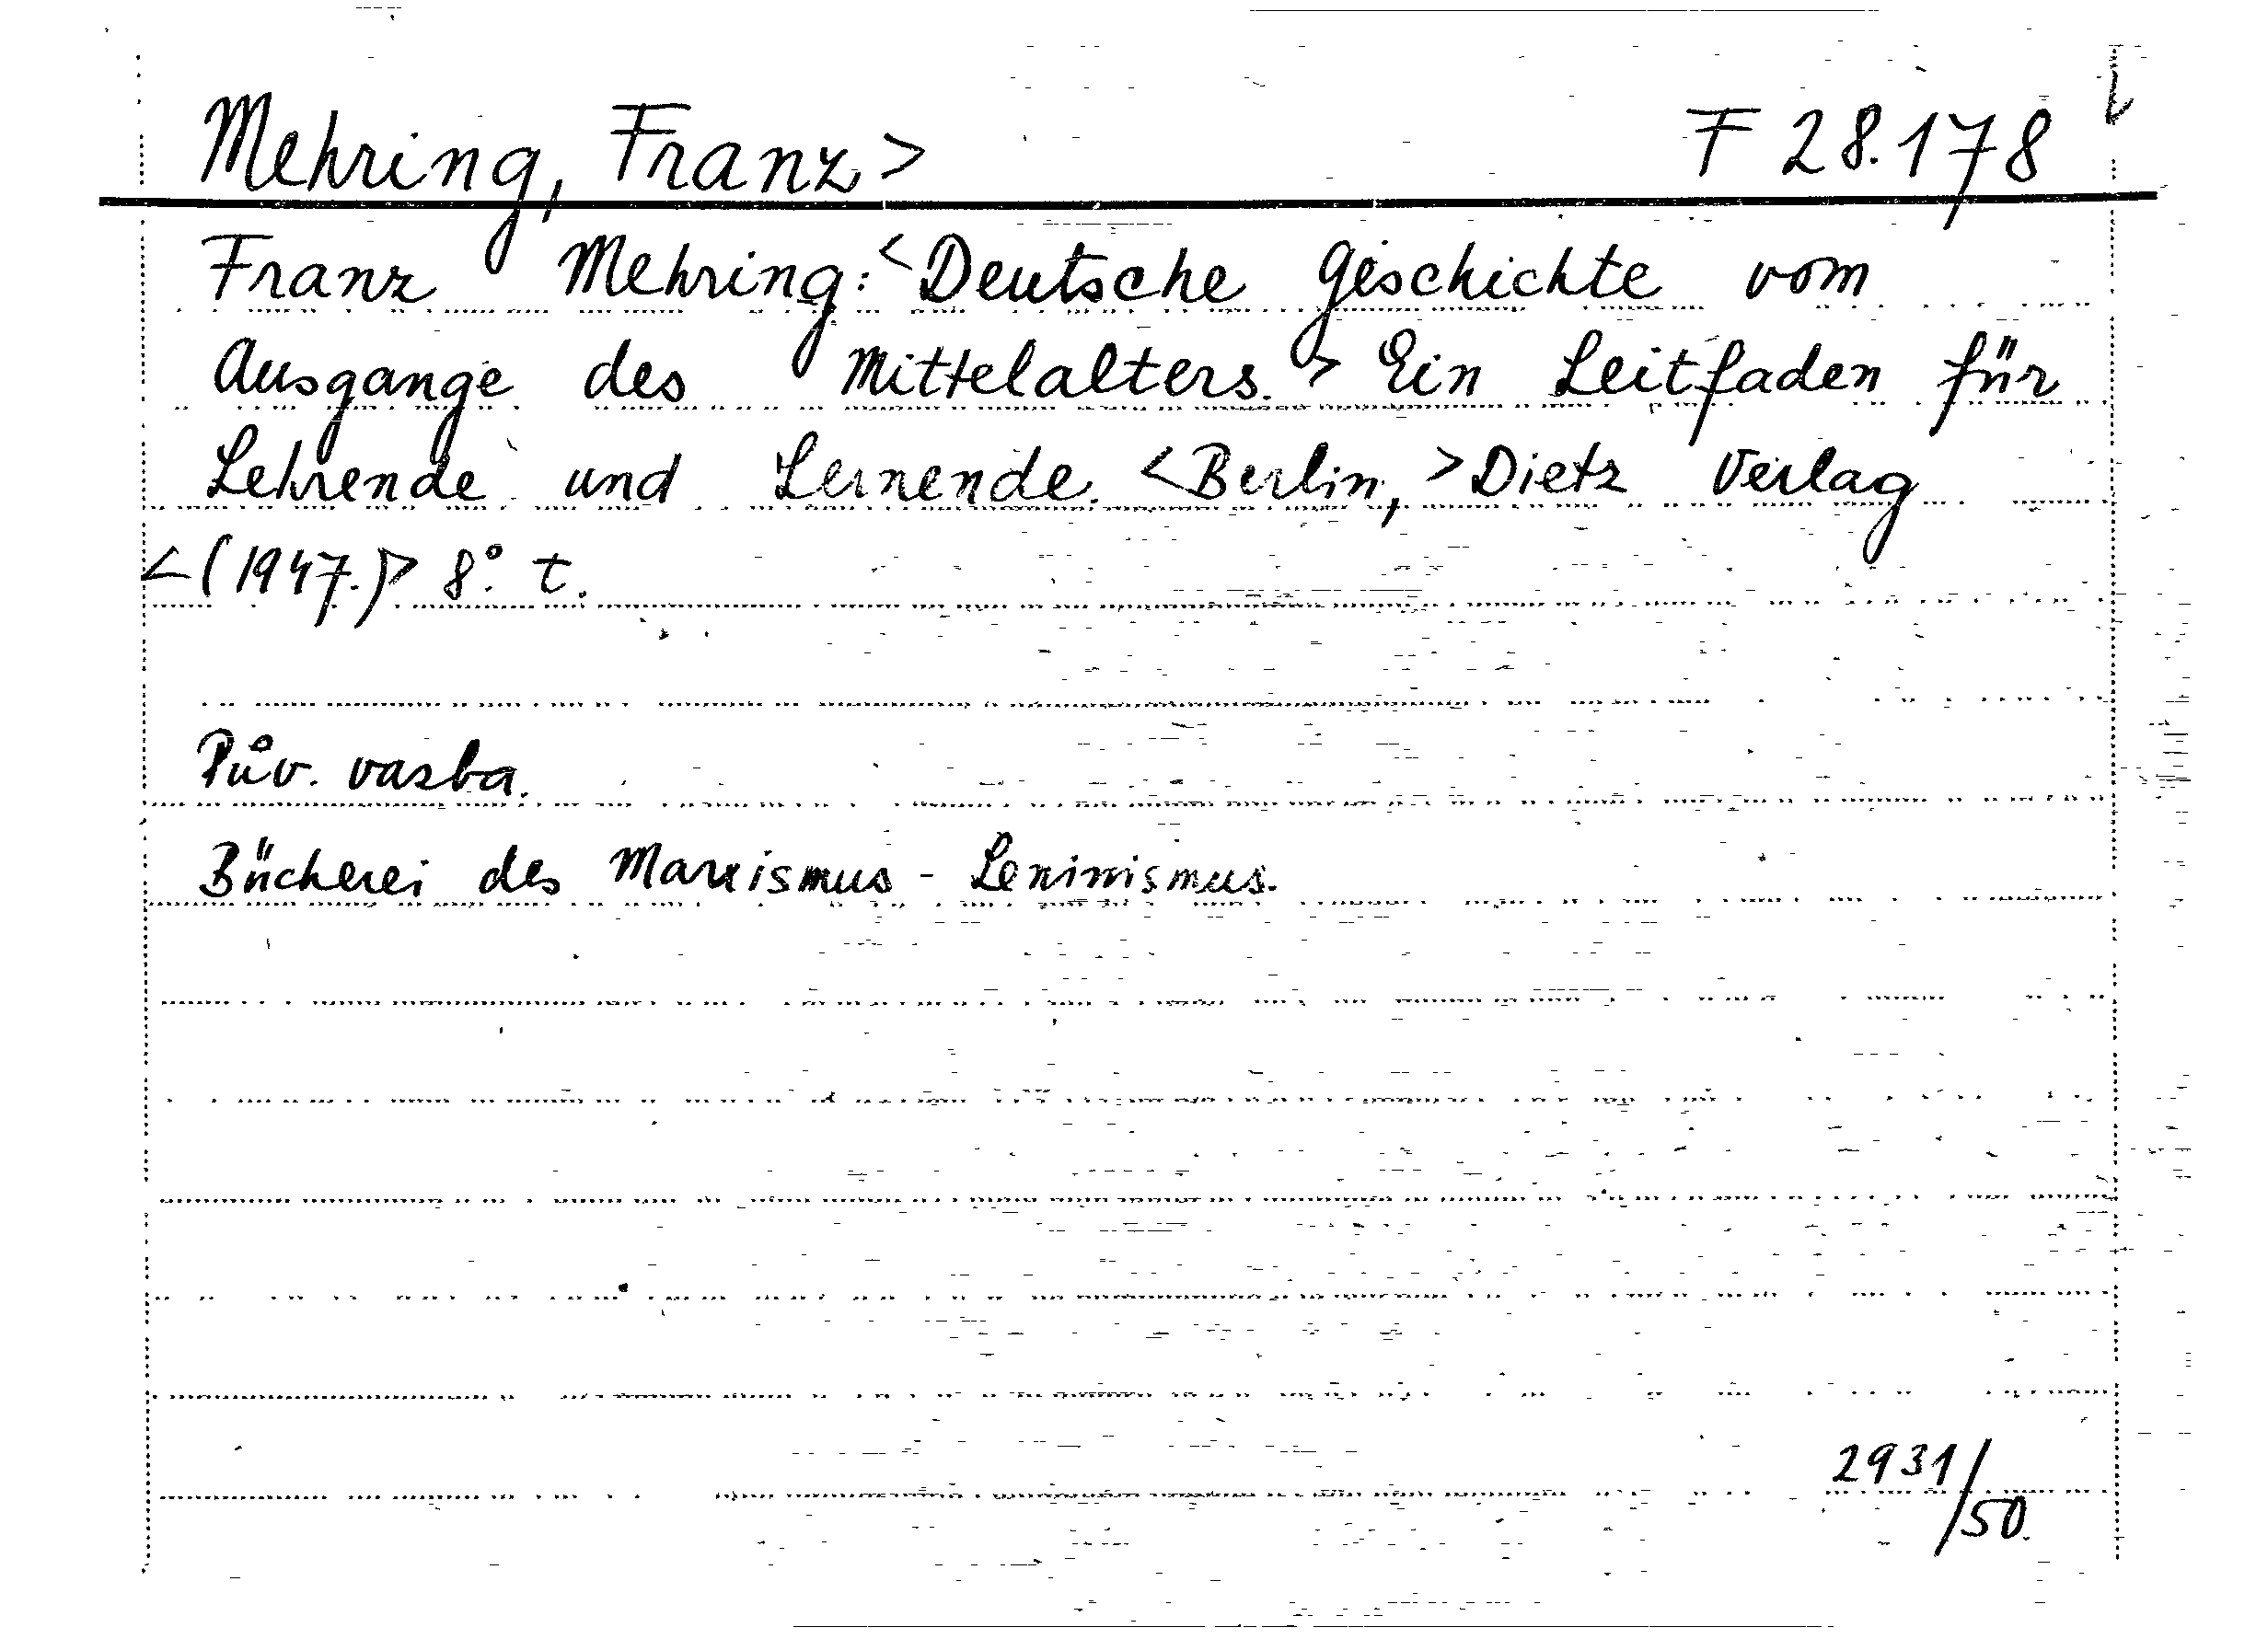 Mehring, Franz> F 28.178
Franz Mehring: <Deutsche Geschichte vom
Ausgange des Mittelalters.> Ein Leitfaden für
Lehrende und Lernende. <Berlin,> Dietz Verlag
<(1947.)> 8°. t.
Pův. vazba.
Bücherei des Marxismus - Leninismus.
2931/50.